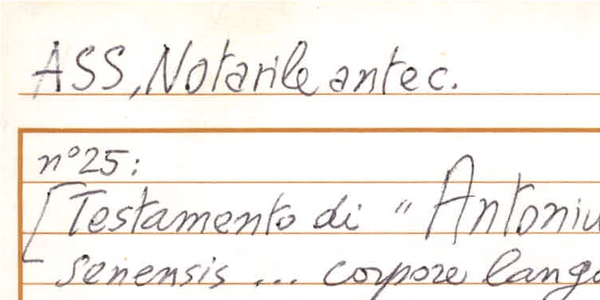 ASS, Notarile antec.
n°25:
[Testamento di "Antoniu
senensis ... corpore lang